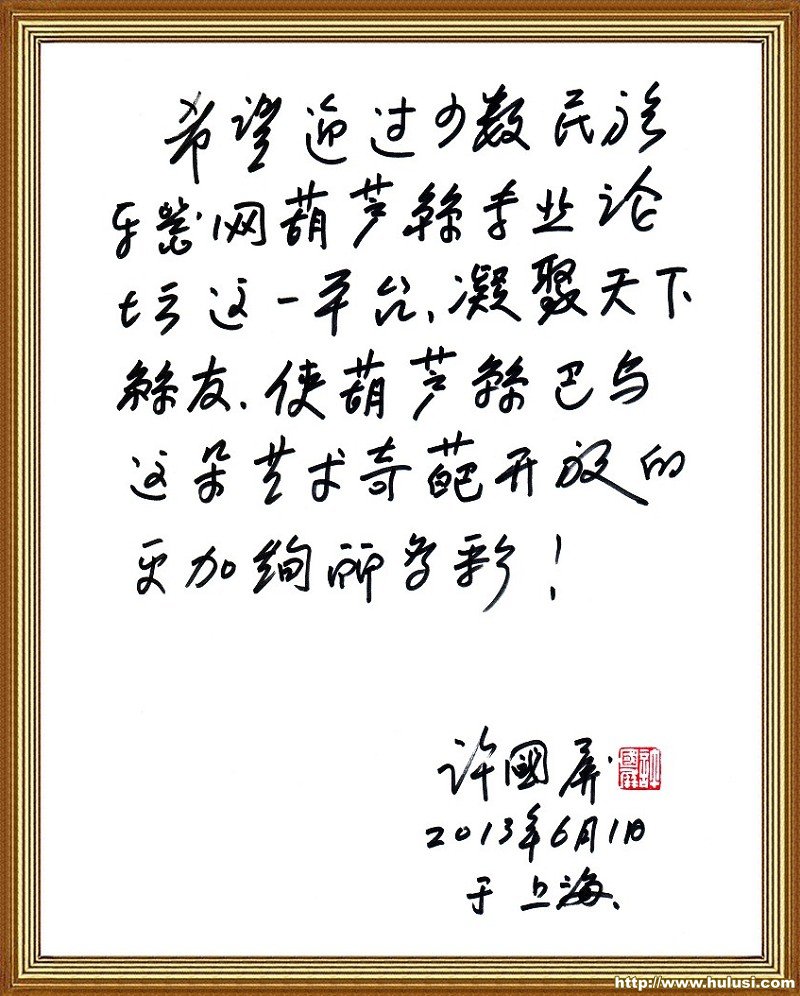 希望通过少数民族
乐器网葫芦絲专业论
坛这一平台、凝聚天下
絲友、使葫芦絲巴乌
这朵艺术奇葩开放的
更加绚丽多彩！
许國屏
2013年6月1日
于上海、
http://www.hulusi.com